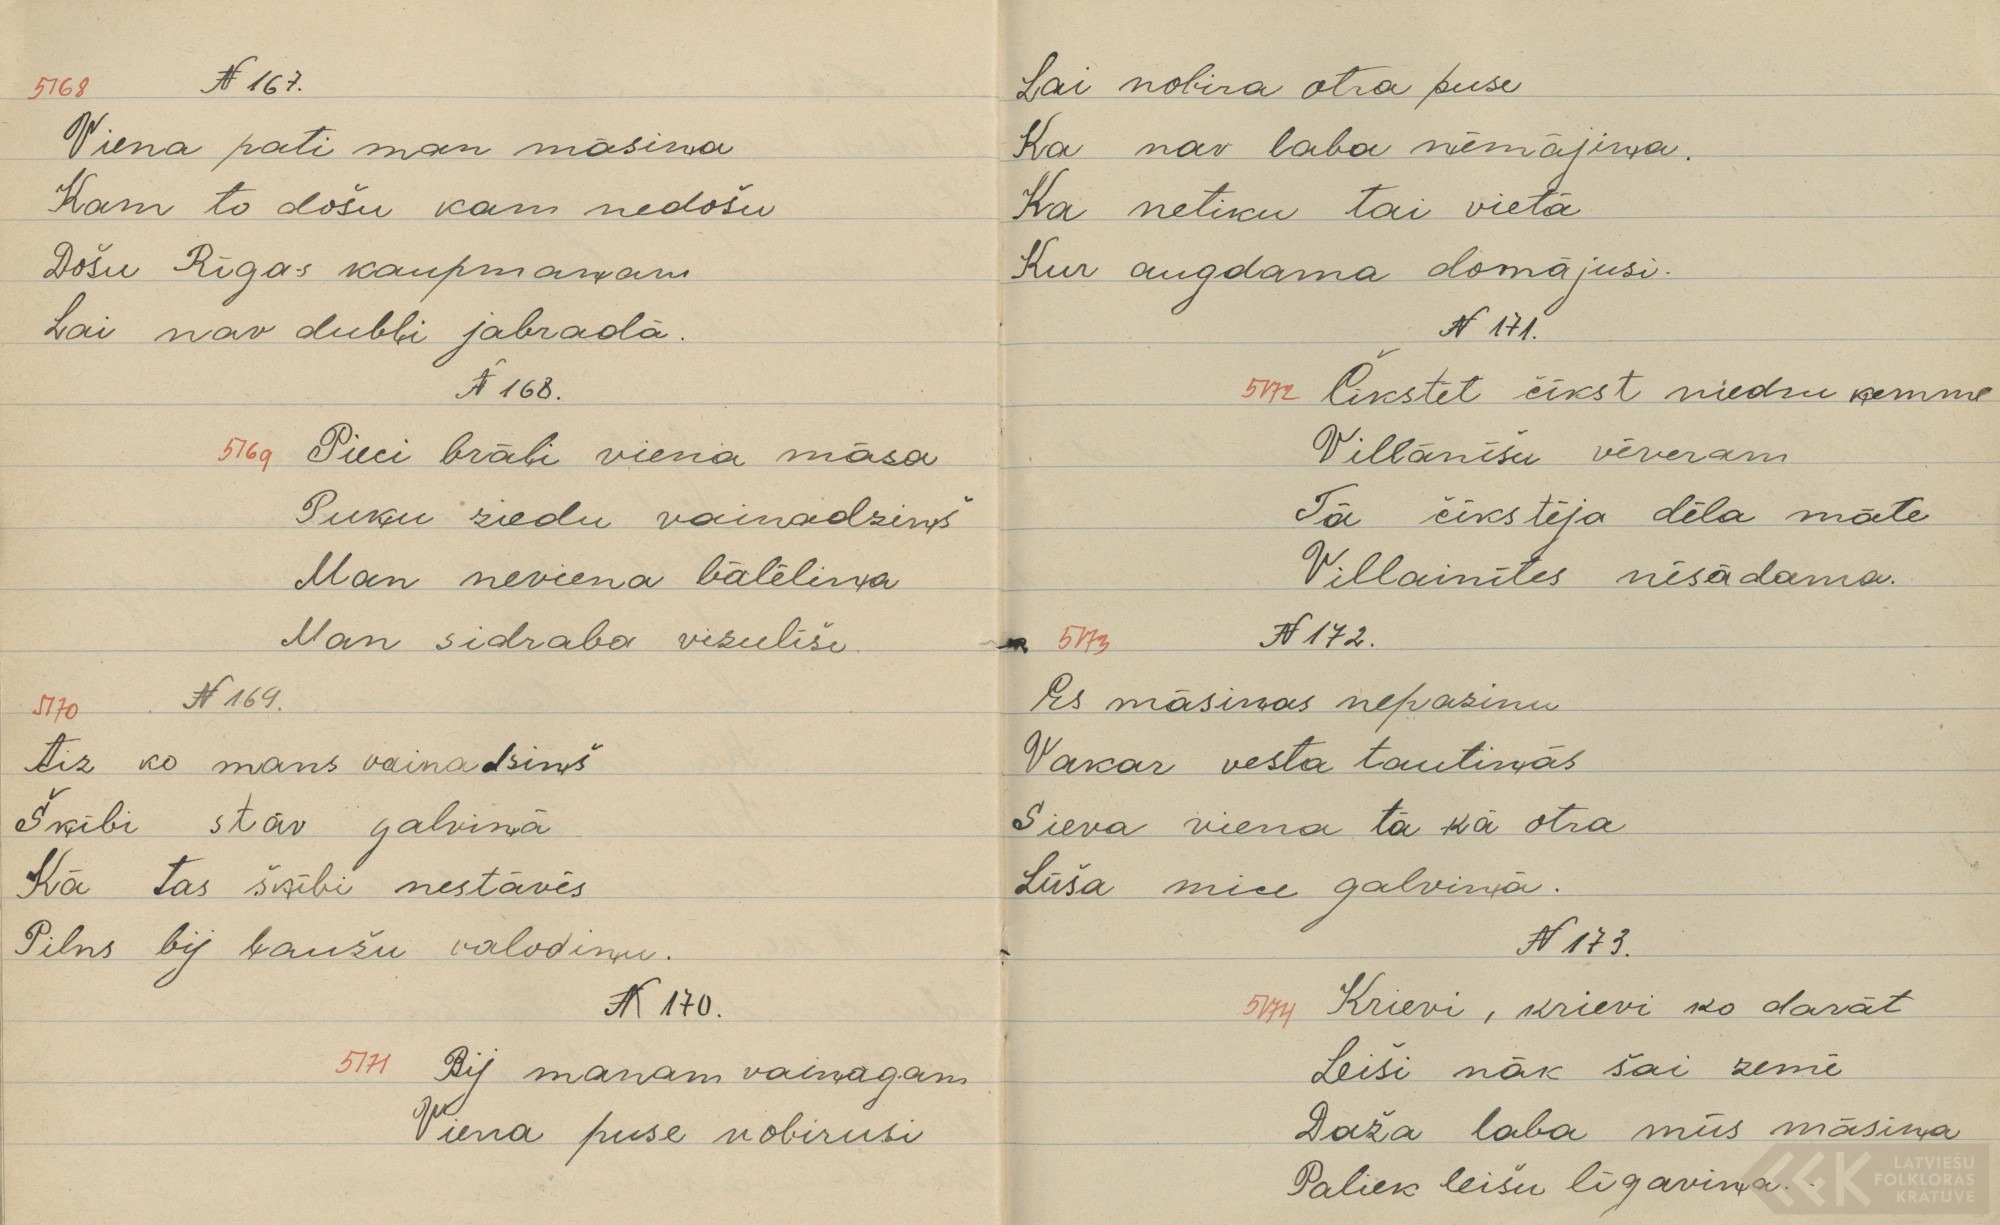 5168 № 167.
Viena pati man māsiņa
Kam to došu kam nedošu
Došu Rīgas kaupmaņam
Lai nav dubļi jabradā.
№ 168.
5169 Pieci brāļi viena māsa
Puķu ziedu vainadziņš
Man neviena bālēliņa
Man sidraba vizulīši
5170 № 169.
Aiz ko mans vainadziņš
Šķībi stāv galviņā
Kā tas šķībi nestāvēs
Pilns bij ļaužu valodiņu.
№ 170.
5171 Bij manam vaiņagam
Viena puse nobirusi
Lai nobira otra puse
Ka nav laba ņēmājiņa.
Ka netiku tai vietā
Kur augdama domājusi.
№ 171.
5172 Čīkstēt čīkst niedru ķemme
Villānīšu vēveram
Tā čīkstēja dēla māte
Villainītes nēsādama.
5173 № 172.
Es māsiņas nepazinu
Vakar vesta tautiņās
Sieva viena tā kā otra
Lūša mice galviņā.
№ 173.
5174 Krievi, krievi ko darāt
Leiši nāk šai zemē
Daža laba mūs māsiņa
Paliek leišu līgaviņa.
LATVIEŠU
FOLKLORAS
KRĀTUVE